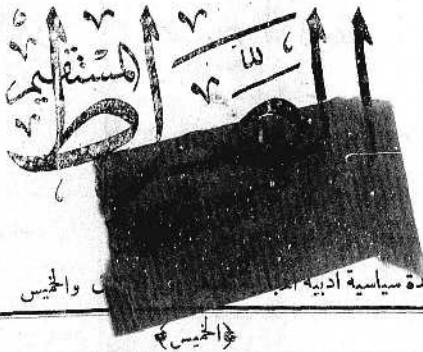 الصراط المستقيم
دة سياسية ادبية والخميس
﴿الخميس﴾